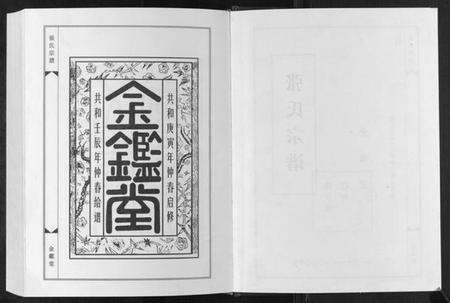 共和庚寅年仲春启修
金鑑堂
共和壬辰年仲春给谱
張氏宗譜
金鑑堂
张氏宗谱